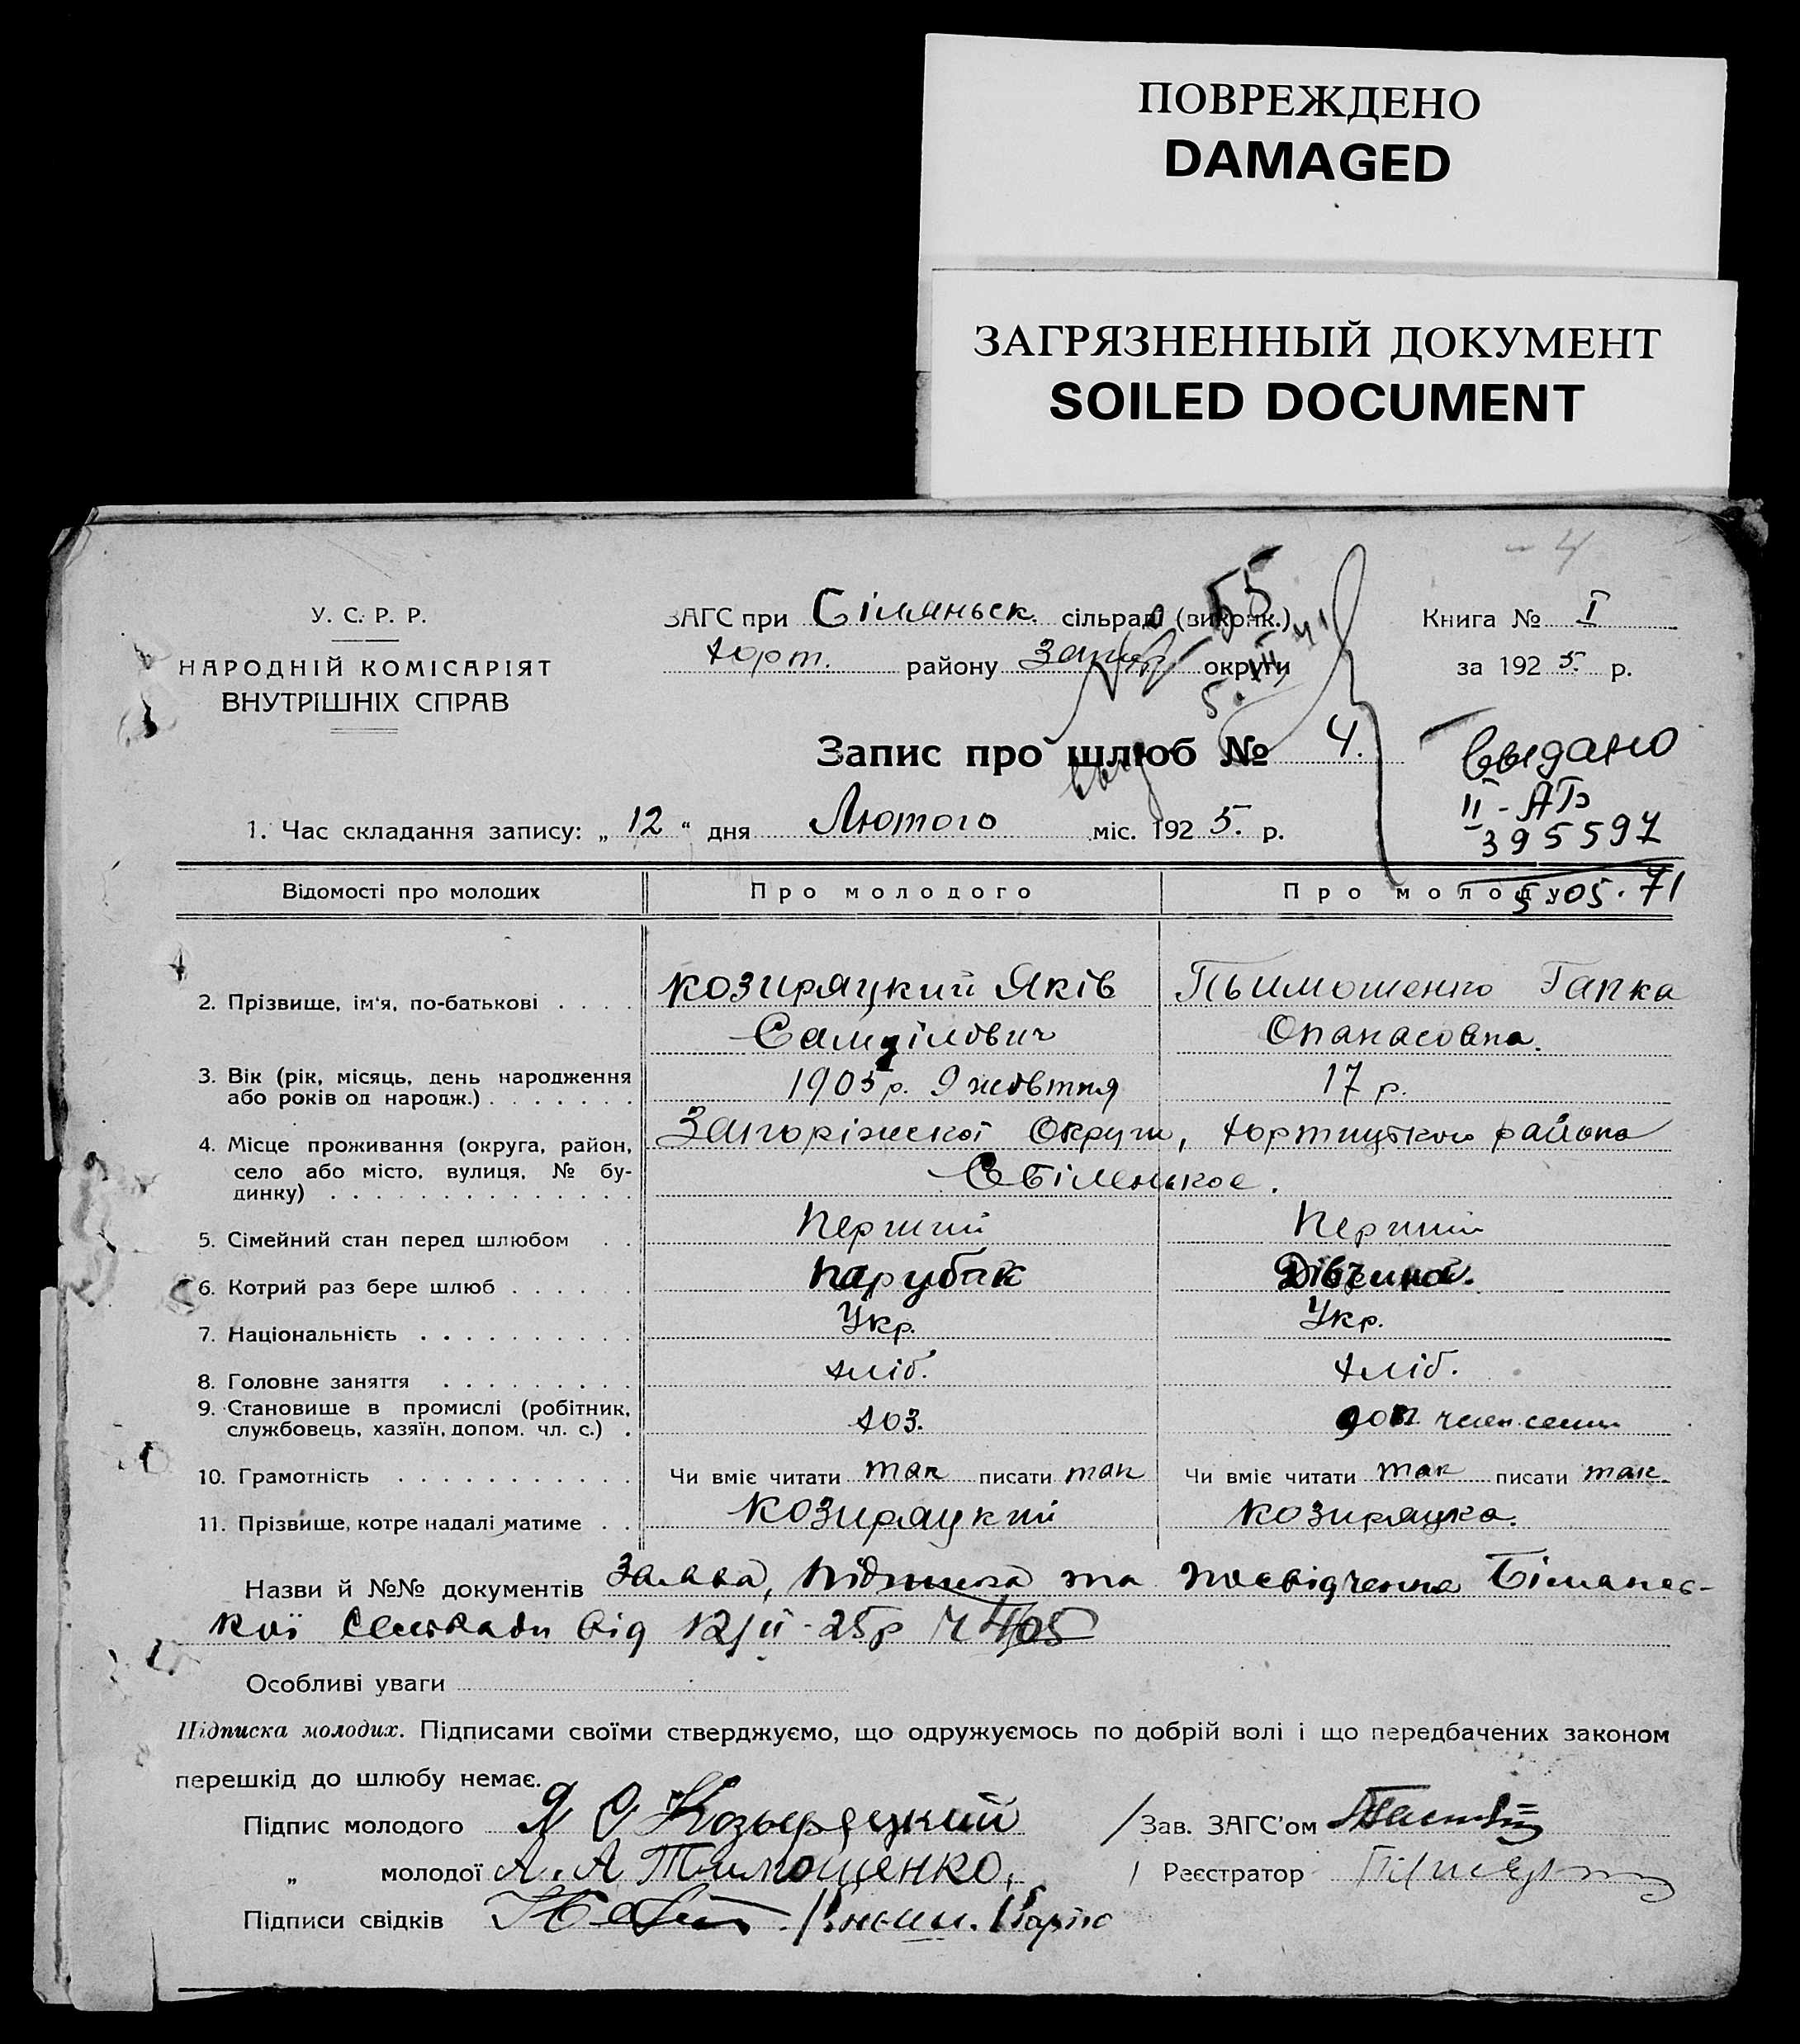 ПОВРЕЖДЕНО
DAMAGED
ЗАГРЯЗНЕННЫЙ ДОКУМЕНТ
SOILED DOCUMENT
- 4
У. С. Р. Р.
НАРОДНІЙ КОМІСАРІЯТ
ВНУТРІШНІХ СПРАВ
ЗАГС при Біляньск. сільраді (виконк.)
Хорт. району округи
Книга № I
за 1925 р.
Запис про шлюб № 4.
Выдано
II - АБ
395597
5.05.71
1. Час складання запису: „ 12 " дня Лютого міс. 1925. р.
Відомості про молодих Про молодого Про молоду
2. Прізвище, ім'я, по-батькові . . . . Козиряцкий Яків Тьимошенко Гапка
Самуілович Опанасовна.
3. Вік (рік, місяць, день народження
або років од народж.) . . . . . . . 1903 р. 9 жовтня 17 р.
4. Місце проживання (округа, район,
село або місто, вулиця, № бу-
динку) . . . . . . . . . . . . . . Запоріжскоі Округи, Хортицького района
С Біленькое.
5. Сімейний стан перед шлюбом . . Перший Перший
6. Котрий раз бере шлюб . . . . . . Парубак Дівчина.
7. Національність . . . . . . . . . . Укр. Укр.
8. Головне заняття . . . . . . . . . Хліб. Хліб.
9. Становище в промислі (робітник,
службовець, хазяїн, допом. чл. с.) . Хоз. доп. член семи
10. Грамотність . . . . . . . . . . . Чи вміє читати так писати так Чи вміє читати так писати так.
11. Прізвище, котре надалі матиме . . Козиряцкий Козиряцка.
Назви й №№ документів Заява, підписка та посвідчення Біланьс-
кої Сельради від 12/II-25р Ч 405
Особливі уваги
Підписка молодих. Підписами своїми стверджуємо, що одружуємось по добрій волі і що передбачених законом
перешкід до шлюбу немає.
Підпис молодого Я С Козыряцкий
Зав. ЗАГС'ом
„ молодої А. А Тимошенко.
Реєстратор
Підписи свідків